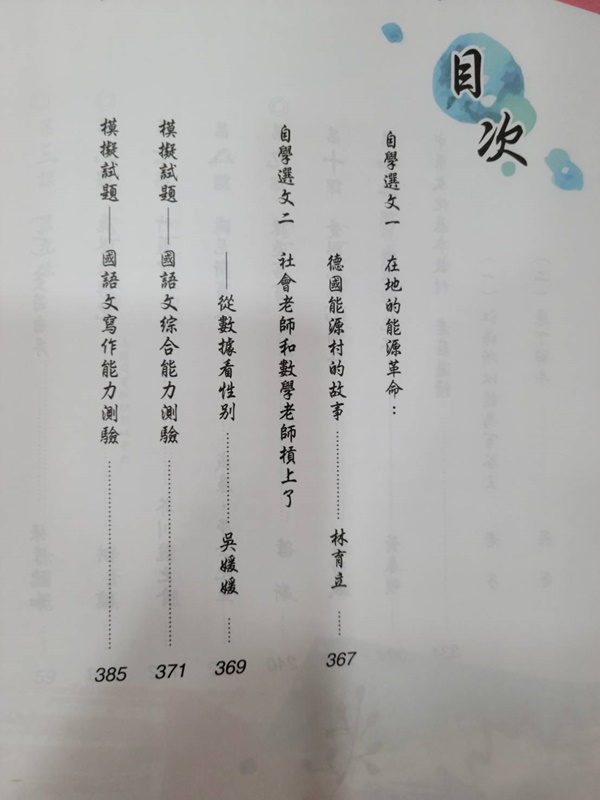 目次
自學選文一 在地的能源革命：
德國能源村的故事………………林育立……367
自學選文二 社會老師和數學老師槓上了
——從數據看性別………………吳媛媛……369
模擬試題——國語文綜合能力測驗………………371
模擬試題——國語文寫作能力測驗………………385